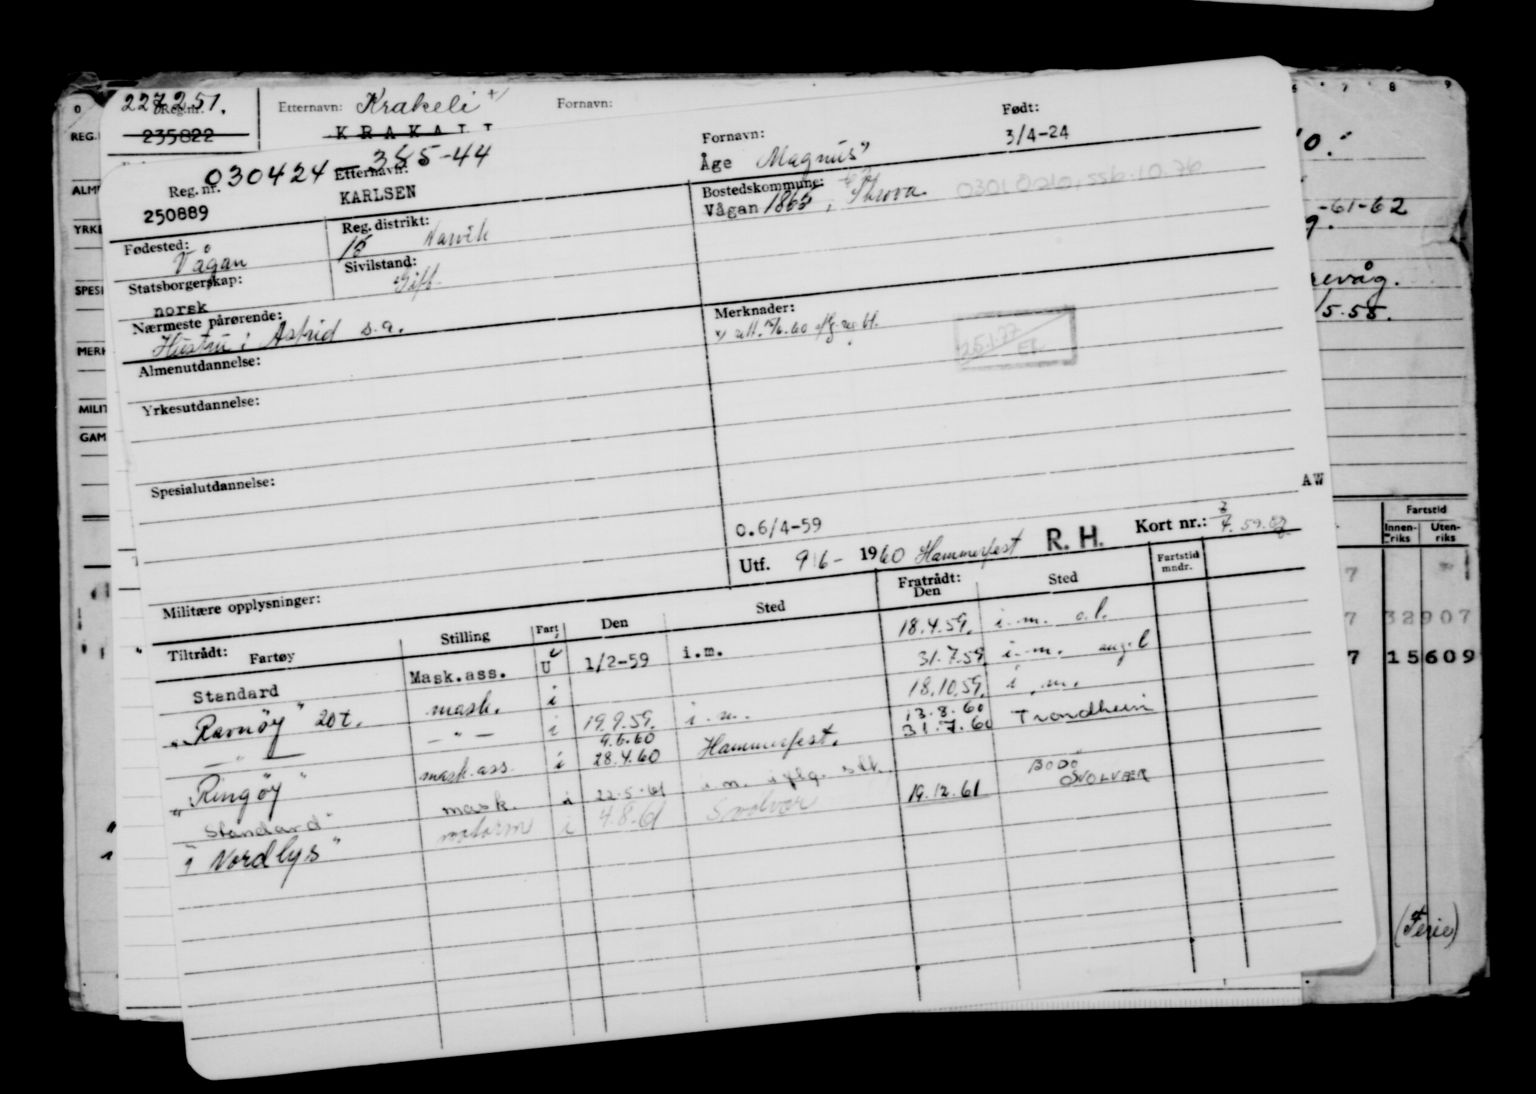 227251.
Reg. nr.
235822
Etternavn: Krakeli +)
Fornavn:
030424 - 385-44
Reg. nr.
250889
Etternavn:
KARLSEN
Fornavn:
Åge Magnus"
Født:
3/4-24
Fødested:
Vågan
Reg. distrikt:
18 Narvik
Bostedskommune:
Vågan 1865, Skrova.
Statsborgerskap:
norsk
Sivilstand:
Gift.
Nærmeste pårørende:
Hustru: Astrid s.a.
Merknader:
25.1.77
Almenutdannelse:
Yrkesutdannelse:
Spesialutdannelse:
AW
O.6/4-59
Utf. 9/6- 1960 Hammerfest R. H. Kort nr.:
Militære opplysninger:
Tiltrådt: Fartøy Stilling Fart Den Sted Fratrådt: Den Sted Fartstid mndr.
Standard Mask.ass. U 1/2-59 i.m. 18.4.59. i.m.
"Ravnøy" 20t. mask. i 31.7.59 i.m.
— " — — " — i 19.9.59. i.m. 18.10.59. i.m.
9.6.60 13.8.60
"Ringøy" mask.ass. i 28.4.60 Hammerfest. 31.7.60 Trondheim
"Standard" mask. i 22.5.61 i.m.
BODØ
"Nordlys" motorm i 4.8.61 Svolvær 19.12.61 SVOLVÆR
6 7 8 9
-61-62
5.58.
Fartstid
Innen-riks Uten-riks
7
7 32907
7 15609
(Ferie)
0
REG.
ALM
YRKE
SPESI
MERK
MILIT
GAM